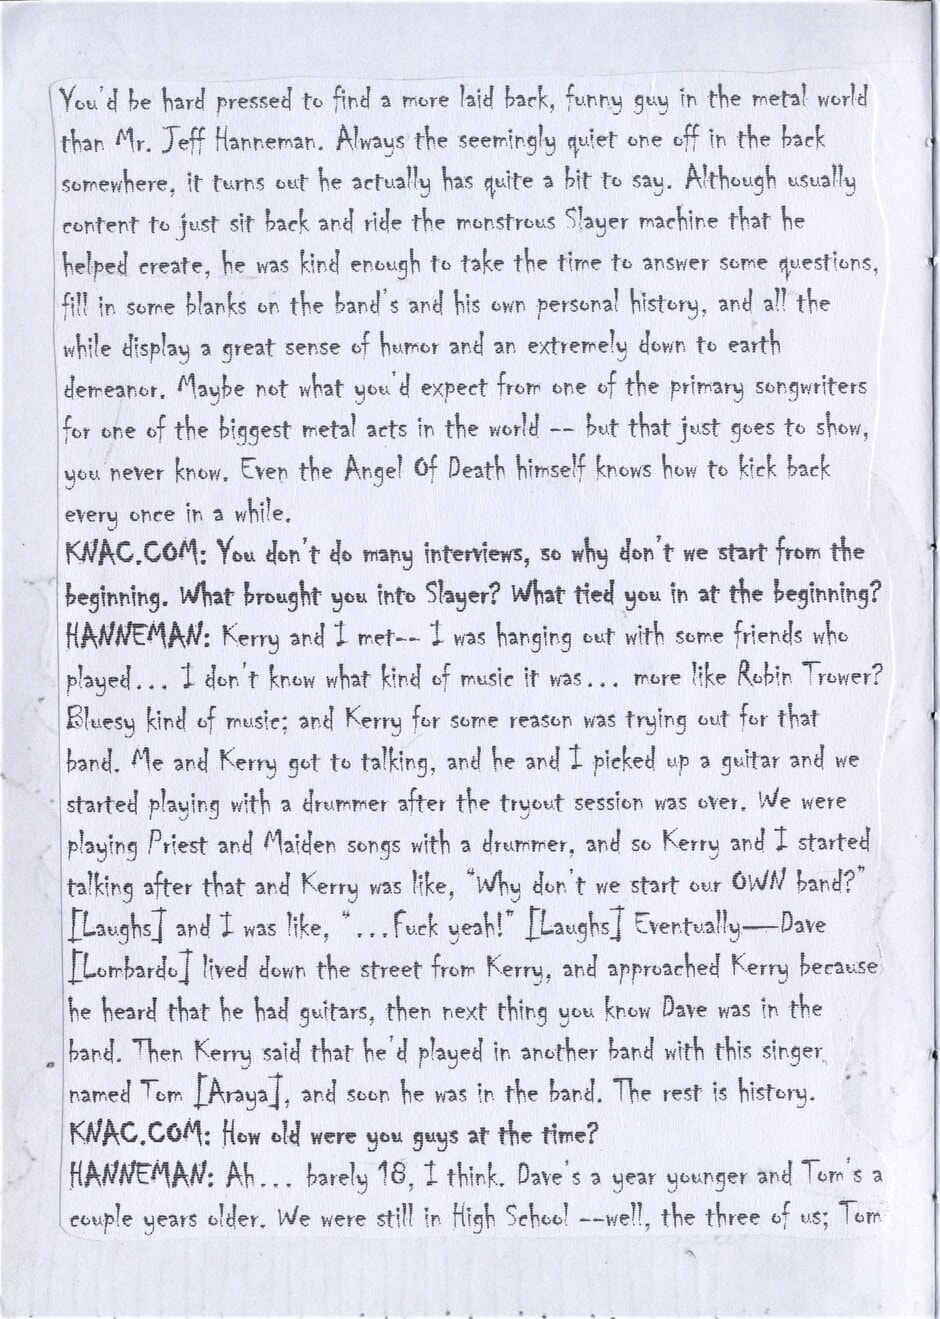 You'd be hard pressed to find a more laid back, funny guy in the metal world
than Mr. Jeff Hanneman. Always the seemingly quiet one off in the back
somewhere, it turns out he actually has quite a bit to say. Although usually
content to just sit back and ride the monstrous Slayer machine that he
helped create, he was kind enough to take the time to answer some questions,
fill in some blanks on the band's and his own personal history, and all the
while display a great sense of humor and an extremely down to earth
demeanor. Maybe not what you'd expect from one of the primary songwriters
for one of the biggest metal acts in the world -- but that just goes to show,
you never know. Even the Angel Of Death himself knows how to kick back
every once in a while.
KNAC.COM: You don't do many interviews, so why don't we start from the
beginning. What brought you into Slayer? What tied you in at the beginning?
HANNEMAN: Kerry and I met-- I was hanging out with some friends who
played... I don't know what kind of music it was... more like Robin Trower?
Bluesy kind of music; and Kerry for some reason was trying out for that
band. Me and Kerry got to talking, and he and I picked up a guitar and we
started playing with a drummer after the tryout session was over. We were
playing Priest and Maiden songs with a drummer, and so Kerry and I started
talking after that and Kerry was like, "Why don't we start our OWN band?"
[Laughs] and I was like, "...Fuck yeah!" [Laughs] Eventually—Dave
[Lombardo] lived down the street from Kerry, and approached Kerry because
he heard that he had guitars, then next thing you know Dave was in the
band. Then Kerry said that he'd played in another band with this singer
named Tom [Araya], and soon he was in the band. The rest is history.
KNAC.COM: How old were you guys at the time?
HANNEMAN: Ah... barely 18, I think. Dave's a year younger and Tom's a
couple years older. We were still in High School --well, the three of us; Tom